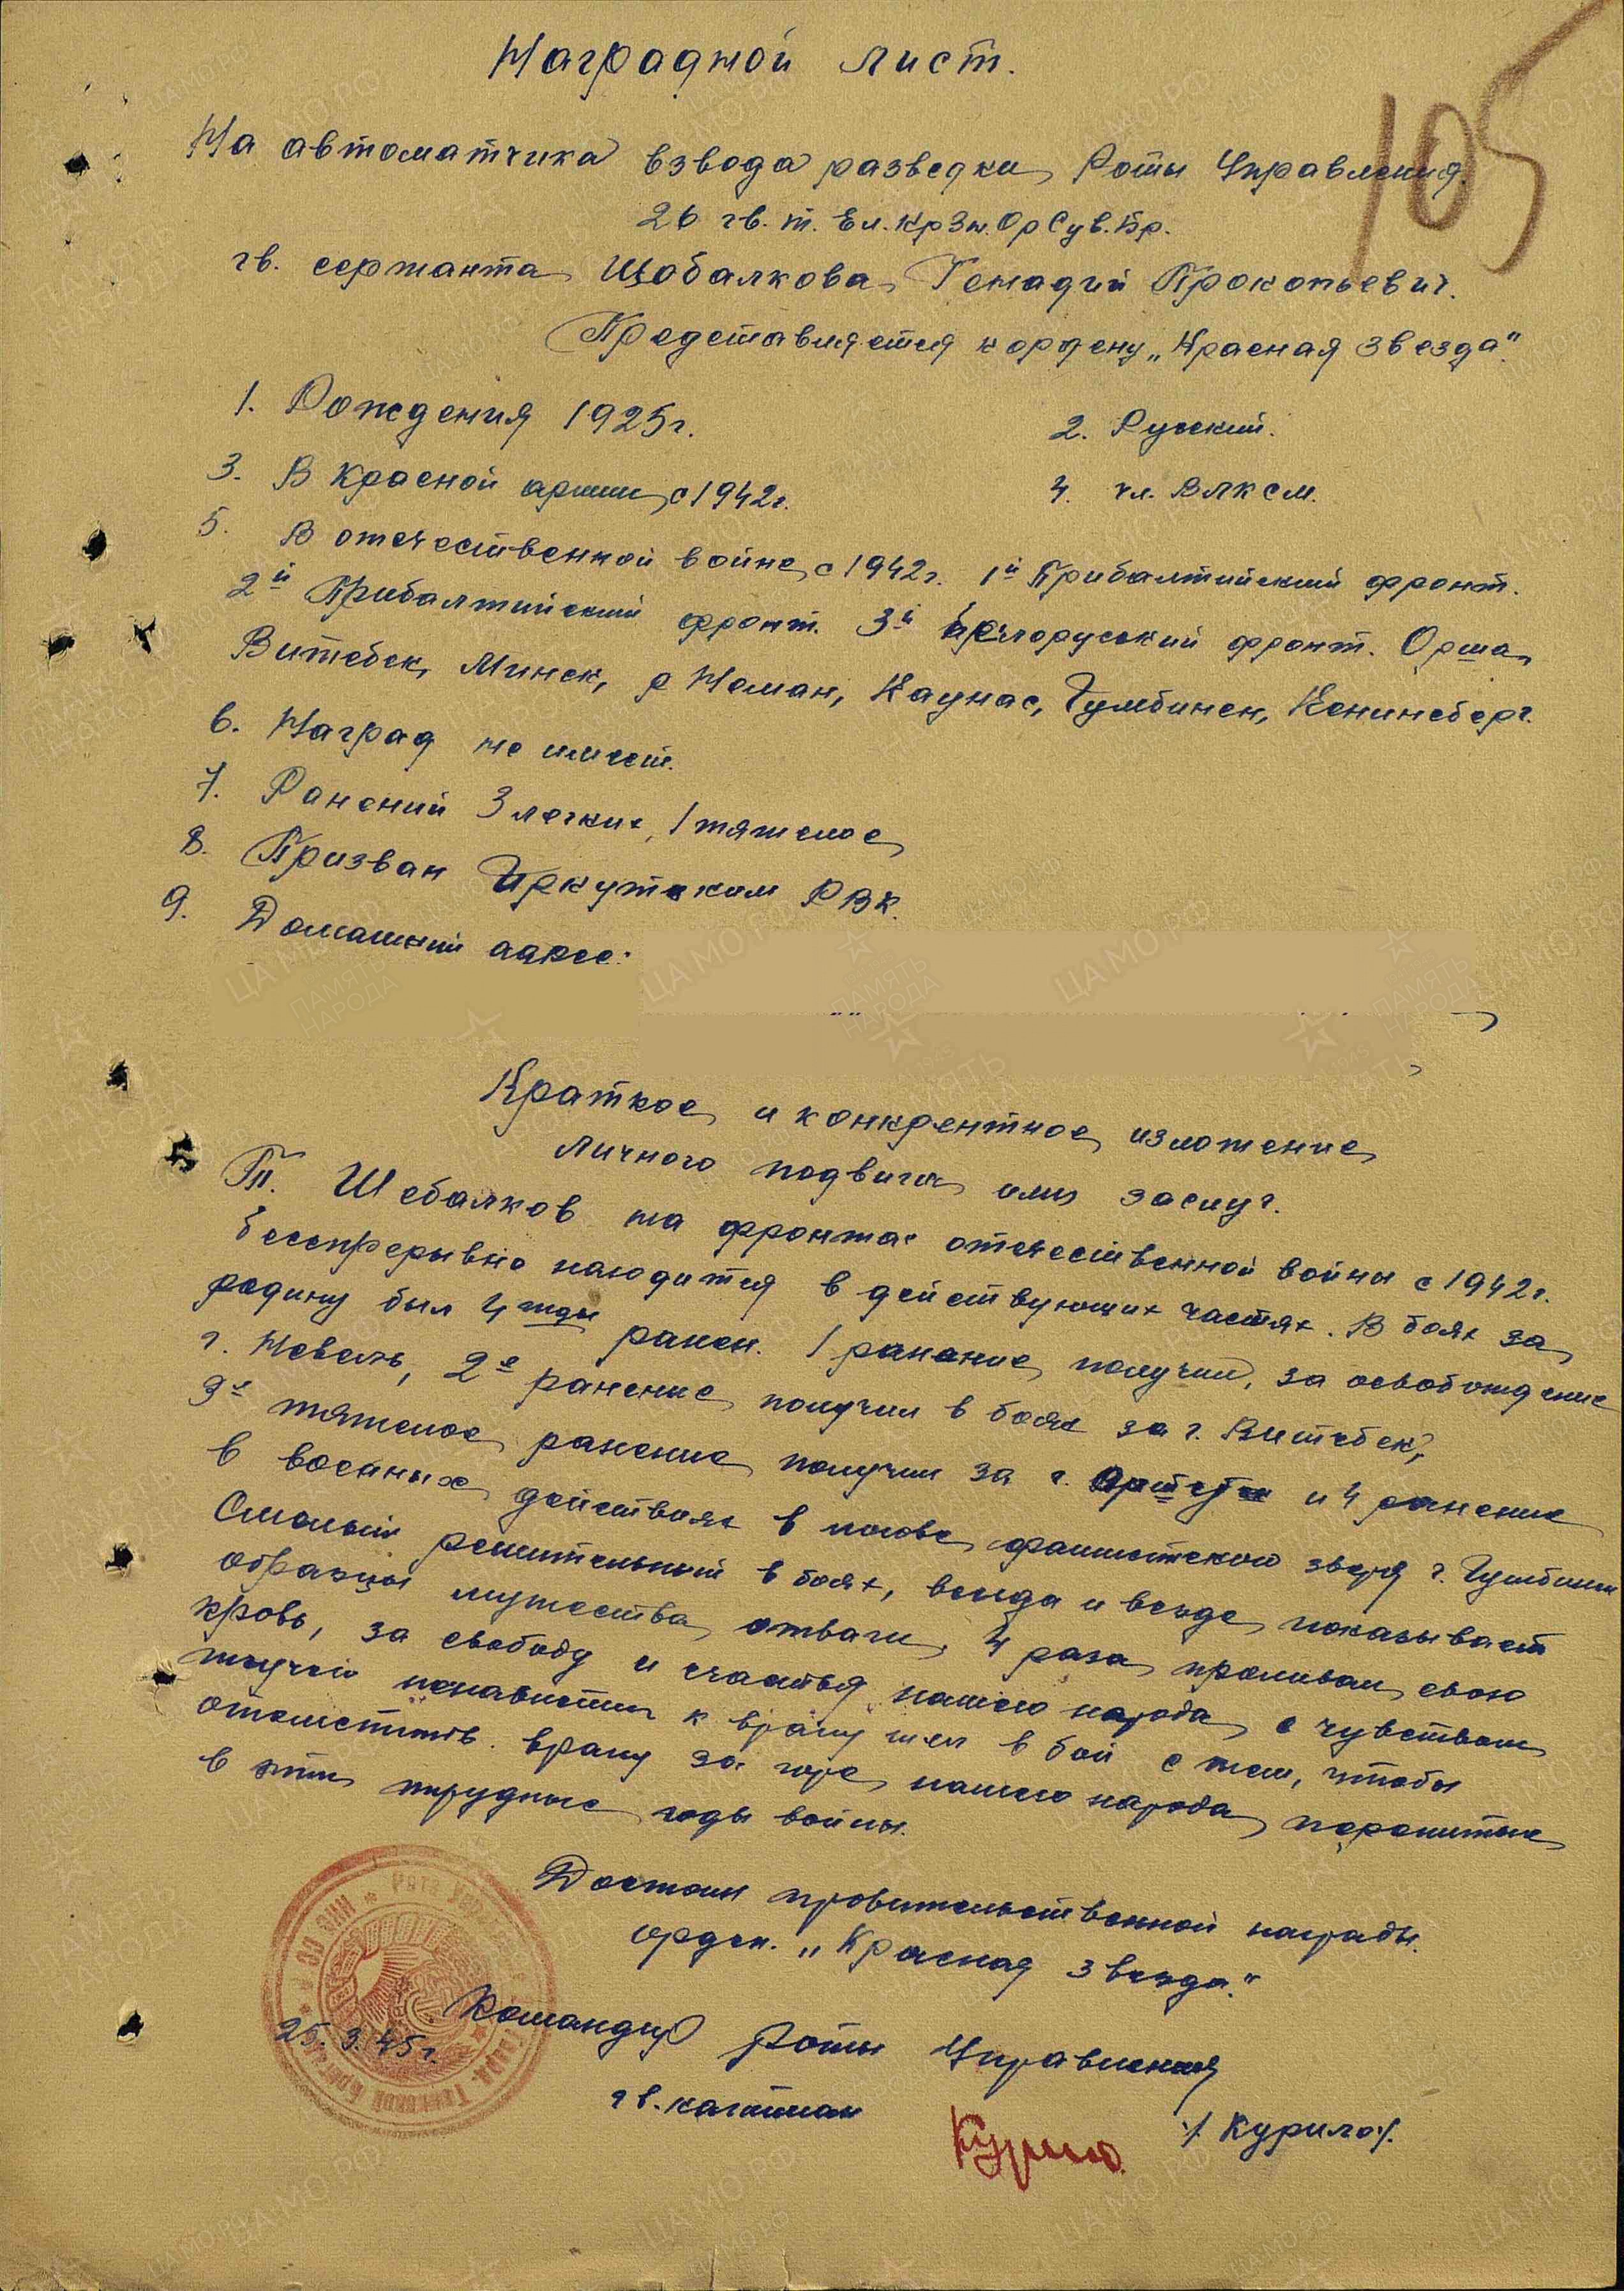 105
Наградной лист.
На автоматчика взвода разведки Роты Управления
26 гв. т. Ел. Кр Зн. Ор Сув. Бр.
гв. сержанта Шобалкова Генадий Прокопьевич.
Представляется к ордену „Красная Звезда".
1. Рождения 1925г.
2. Русский.
3. В Красной армии с 1942г.
4. чл. ВЛКСМ.
5. В отечественной войне с 1942г. 1й Прибалтийский фронт.
2й Прибалтийский фронт. 3й Белоруский фронт. Орша,
Витебск, Минск, р Неман, Каунас, Гумбинен, Кенинсберг.
6. Наград не имеет.
7. Ранений 3 легких, 1 тяжелое
8. Призван Иркутским РВК.
9. Домашний адрес:
Краткое и конкрентное изложение
личного подвига или заслуг.
Т. Шебалков на фронтах отечественной войны с 1942г.
бесспрерывно находится в действующих частях. В боях за
родину был 4 жды ранен. 1 ранение получил, за освобождение
г. Невель, 2е ранение получил в боях за г. Витебск,
3е тяжелое ранение получил за г. и 4 ранение
в военных действиях в логове фашисткого зверя г. Гумбинен
Смелый решительный в боях, всегда и везде показывает
образцы мужества отваги. 4 раза проливал свою
кровь, за свободу и счастья нашего народа с чувством
жгучей ненависти к врагу шел в бой с тем, чтобы
отомстить врагу за горе нашего народа
в эти трудные годы войны.
Достоин правительственной награды.
орден. „Красная звезда."
Командир Роты Управления
25.3.45г.
гв. капитан
Курило
/Курило/.
ЦА МО.РФ
ПАМЯТЬ
НАРОДА